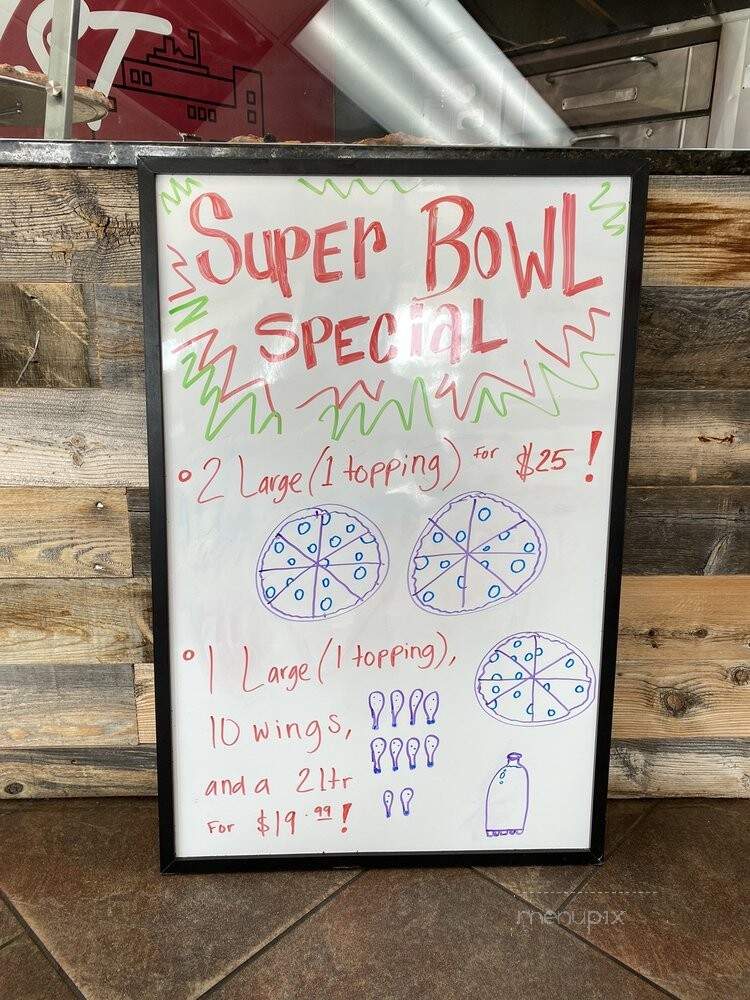 ST
SUPER BOWL
SPECIAL
• 2 Large (1 topping) for $25!
• 1 Large (1 topping),
10 wings,
and a 2ltr
For $19.99!
menupix